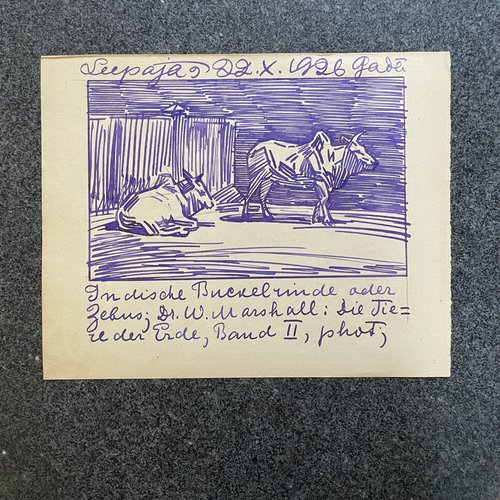 Leepajas 22.X.1926 Gadā
Indische Buckelrinde oder
Zebus; Dr. W. Marshall: Die Tie=
re der Erde, Band II, phot;